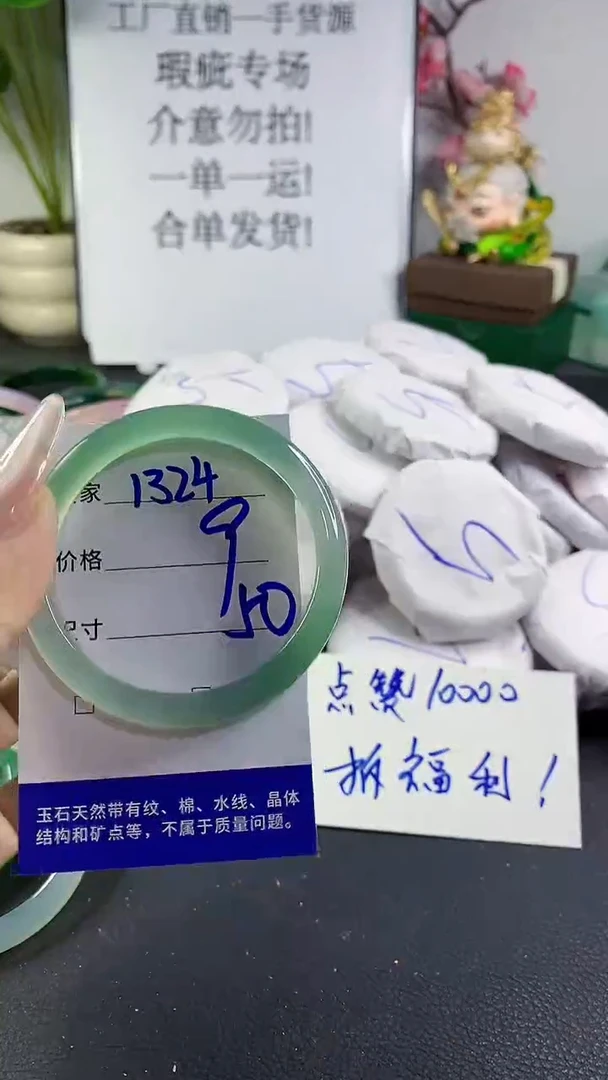 工厂直销一手货源
瑕疵专场
介意勿拍!
一单一运!
合单发货!
家 1324
价格 9
尺寸 50
玉石天然带有纹、棉、水线、晶体
结构和矿点等，不属于质量问题。
点赞10000
拆福利!